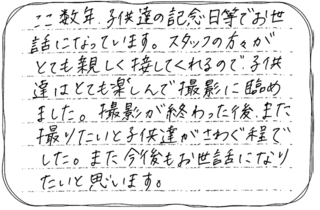 ここ数年、子供達の記念日等でお世
話になっています。スタッフの方々が
とても親しく接してくれるので子供
達はとても楽しんで撮影に臨め
ました。撮影が終わった後、また
撮りたいと子供達がさわぐ程で
した。また今後もお世話になり
たいと思います。